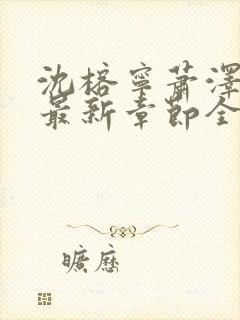 沈榕寧蕭澤
最新章節全
曠歷